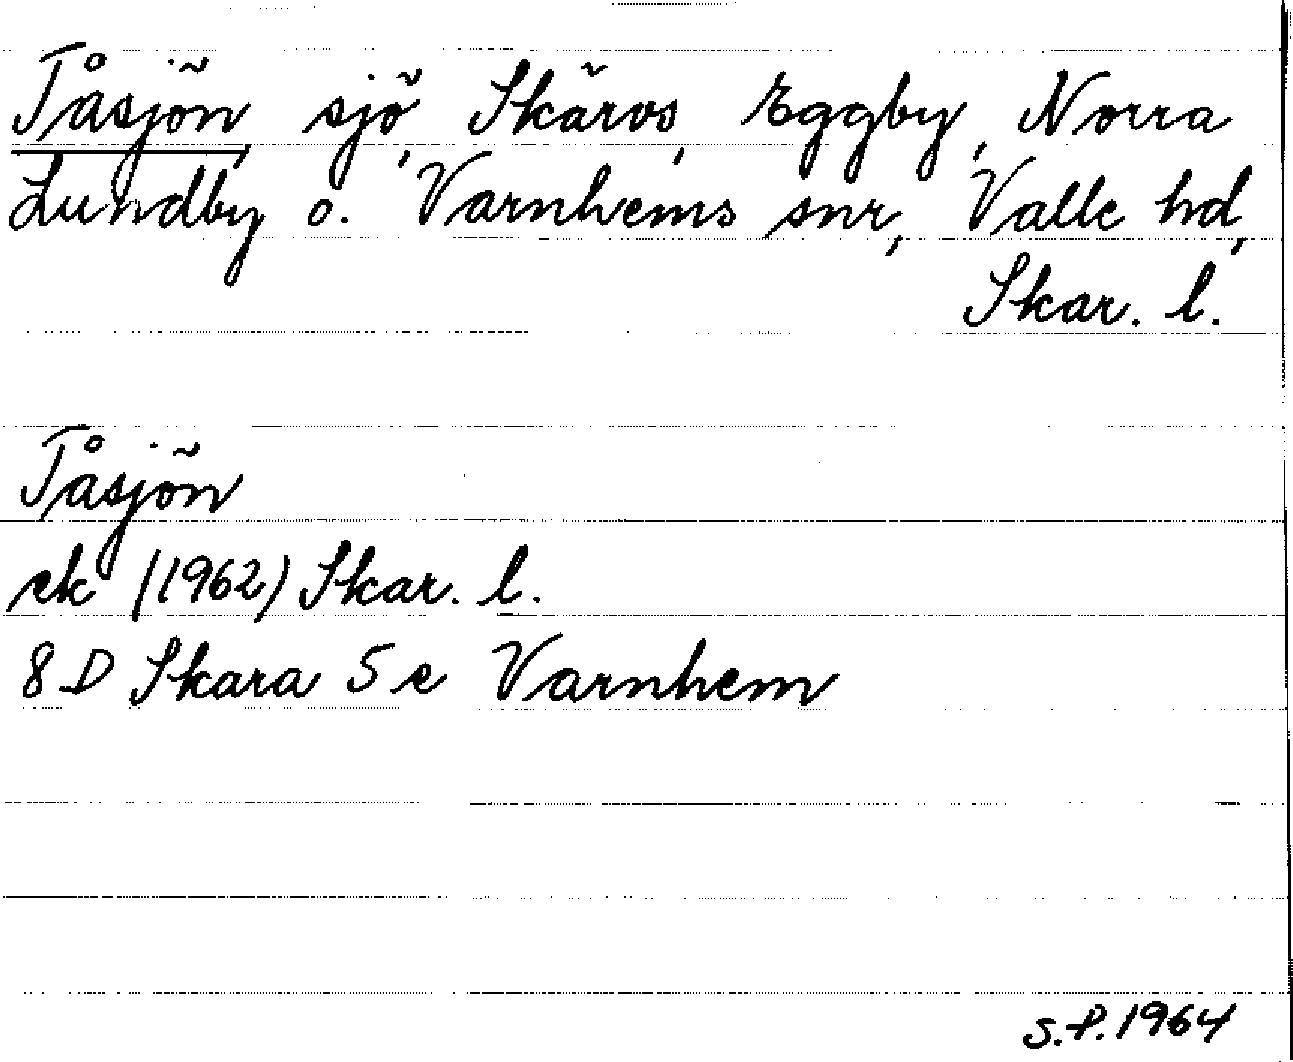 Tåsjön, sjö, Skärvs, Eggby, Norra
Lundby o. Varnhems snr, Valle hd,
Skar. l.
Tåsjön
ek (1962) Skar. l.
8 D Skara 5 e Varnhem
S.P. 1964